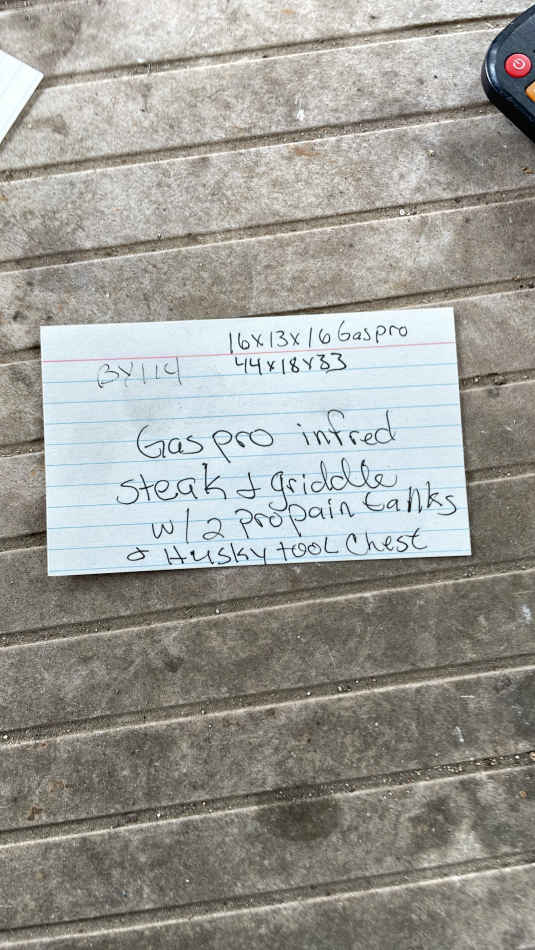 16x13x16 Gaspro
BX114 44x18x33
Gas pro infred
steak & griddle
w/ 2 propain tanks
& Husky tool Chest